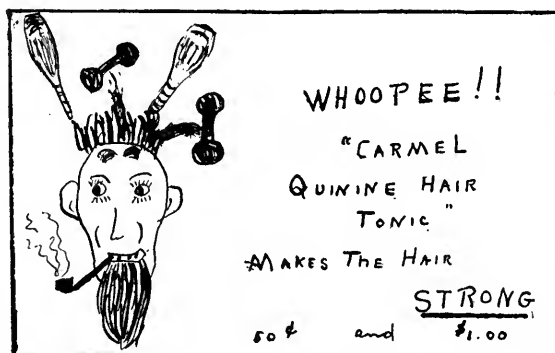 WHOOPEE!!
"CARMEL
QUININE HAIR
TONIC"
MAKES THE HAIR
STRONG
50¢ and $1.00